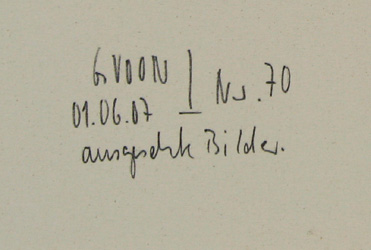 GVOON | Nr. 70
01.06.07
ausgesetzte Bilder.